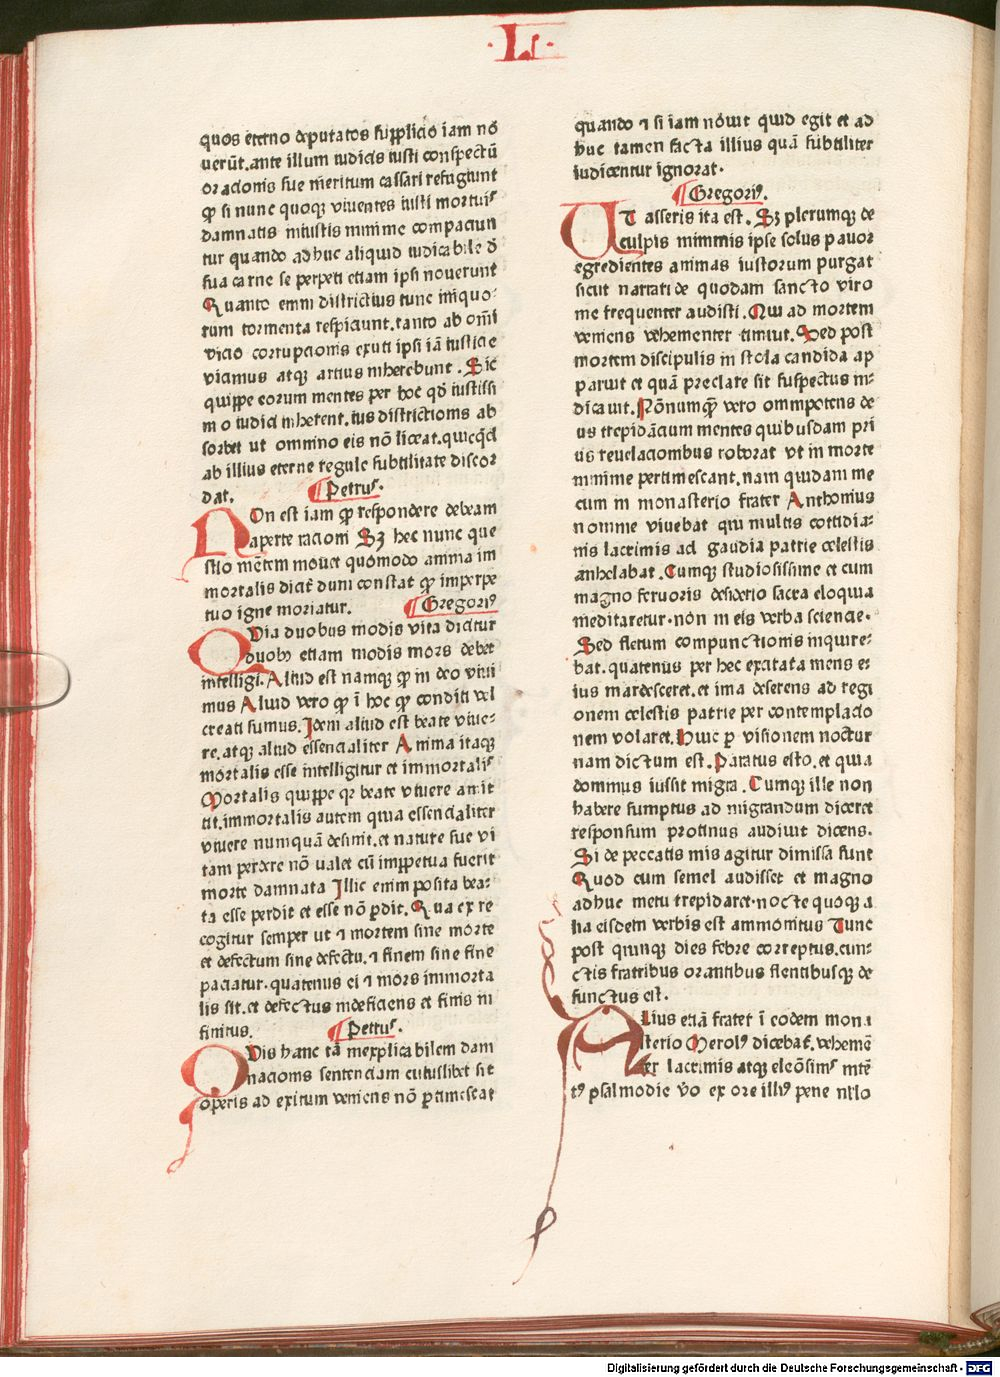 ·L·
quos eterno deputatos supplicio iam nō
uerūt. ante illum iudicis iusti conspectū
oracionis sue meritum cassari refugiunt
ꝙ si nunc quoqꝫ viuentes iusti mortuis
damnatis iniustis minime compaciun
tur quando adhuc aliquid iudicabile d̄
sua carne se perpeti etiam ipsi nouerunt
Quanto enim districtius tunc iniquo⸗
rum tormenta respiciunt. tanto ab om̄i
vicio corrupcionis exuti ipsi iā iusticie
vicinius atqꝫ artius inherebunt. Sic
quippe eorum mentes per hoc qd̄ iustissi
mo iudici inherent. ius districtionis ab
sorbet ut omnino eis nō liceat. quicq̄d
ab illius eterne regule subtilitate discor
dat. ¶ Petrus.
NOn est iam ꝙ respondere debeam
aperte racioni Sꝫ hec nunc que
stio mētem mouet quomodo anima im
mortalis dicat̄ dum constat ꝙ imperpe
tuo igne moriatur. ¶ Gregoriꝰ
QVia duobus modis vita dicitur
duobꝫ etiam modis mors debet
intelligi. Aliud est namqꝫ ꝙ in deo viui
mus Aliud vero ꝙ ī hoc ꝙ conditi vel
creati sumus. Idem aliud est beate viue⸗
re. atqꝫ aliud essencialiter Anima itaqꝫ
mortalis esse intelligitur et immortalis
Mortalis quippe qꝛ beate viuere amit
tit. immortalis autem quia essencialiter
viuere numquā desinit. et nature sue vi
tam perdere nō valet cū imꝑpetua fuerit
morte damnata Illic enim posita bea⸗
ta esse perdit et esse nō ꝑdit. Qua ex re
cogitur semper ut ⁊ mortem sine morte
et defectum sine defectu. ⁊ finem sine fine
paciatur. quatenus ei ⁊ mors immorta
lis sit. et defectus indeficiens et finis in
finitus. ¶ Petrus.
QVis hanc tā inexplicabilem dam
nacionis sentenciam cuiuslibet sit
operis ad exitum veniens nō ꝑtimescat
quando ⁊ si iam nouit quid egit et ad
huc tamen facta illius quā subtiliter
iudicentur ignorat.
¶ Gregoriꝰ.
UT asseris ita est. Sꝫ plerumqꝫ de
culpis minimis ipse solus pauor
egredientes animas iustorum purgat
sicut narrati de quodam sancto viro
me frequenter audisti. Qui ad mortem
veniens vehementer timuit. Sed post
mortem discipulis in stola candida ap
paruit et quā preclare sit suspectus in⸗
dicauit. Nōnumqꝫ vero omnipotens de
us trepidācium mentes quibusdam pri
us reuelacionibus roborat vt in morte
minime pertimescant. nam quidam me
cum in monasterio frater Anthonius
nomine viuebat qui multis cottidia⸗
nis lacrimis ad gaudia patrie celestis
anhelabat. Cumqꝫ studiosissime et cum
magno feruoris desiderio sacra eloquia
meditaretur. non in eis verba sciencie.
Sed fletum compunctionis inquire⸗
bat. quatenus per hec excitata mens e⸗
ius inardesceret. et ima deserens ad regi
onem celestis patrie per contemplacio
nem volaret. Huic ꝑ visionem noctur
nam dictum est. Paratus esto. et quia
dominus iussit migra. Cumqꝫ ille non
habere sumptus ad migrandum diceret
responsum protinus audiuit dicens.
Si de peccatis tuis agitur dimissa sunt
Quod cum semel audisset et magno
adhuc metu trepidaret. nocte quoqꝫ a
lia eisdem verbis est ammonitus Tunc
post quinqꝫ dies febre correptus. cun⸗
ctis fratribus orantibus flentibusqꝫ de
functus est.
ALius eciā frater ī eodem mona
sterio Merolꝰ dicebat̄. vehemē⸗
ter lacrimis atqꝫ elemōsinis intē
tꝰ psalmodie v̄o ex ore illiꝰ pene nulo
Digitalisierung gefördert durch die Deutsche Forschungsgemeinschaft - DFG